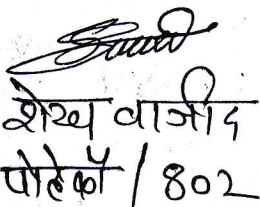 शेख वाजीद
पोहेकॉ / 802